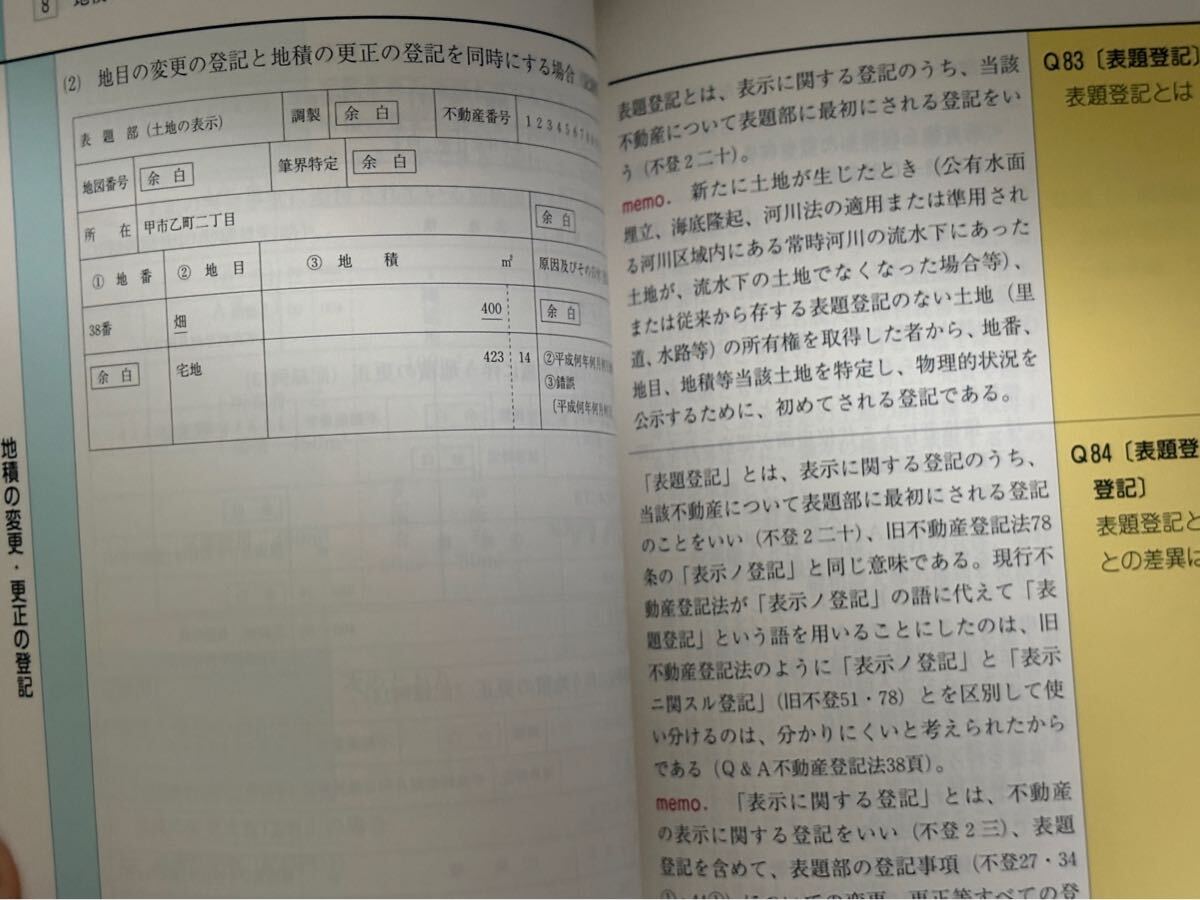 8
地積の変更・更正の登記
(2) 地目の変更の登記と地積の更正の登記を同時にする場合
表 題 部 (土地の表示) 調製 余 白 不動産番号 1 2 3 4 5 6 7 8
地図番号 余 白 筆界特定 余 白
所 在 甲市乙町二丁目 余 白
① 地 番 ② 地 目 ③ 地 積 ㎡ 原因及びその
38番 畑 400 余 白
余 白 宅地 423 14 ②平成何年何月
③錯誤
〔平成何年何月
表題登記とは、表示に関する登記のうち、当該
不動産について表題部に最初にされる登記をい
う(不登2二十)。
memo. 新たに土地が生じたとき(公有水面
埋立、海底隆起、河川法の適用または準用され
る河川区域内にある常時河川の流水下にあった
土地が、流水下の土地でなくなった場合等)、
または従来から存する表題登記のない土地(里
道、水路等)の所有権を取得した者から、地番、
地目、地積等当該土地を特定し、物理的状況を
公示するために、初めてされる登記である。
Q83〔表題登記〕
表題登記とは
「表題登記」とは、表示に関する登記のうち、
当該不動産について表題部に最初にされる登記
のことをいい(不登2二十)、旧不動産登記法78
条の「表示ノ登記」と同じ意味である。現行不
動産登記法が「表示ノ登記」の語に代えて「表
題登記」という語を用いることにしたのは、旧
不動産登記法のように「表示ノ登記」と「表示
ニ関スル登記」(旧不登51・78)とを区別して使
い分けるのは、分かりにくいと考えられたから
である(Q&A不動産登記法38頁)。
memo. 「表示に関する登記」とは、不動産
の表示に関する登記をいい(不登2三)、表題
登記を含めて、表題部の登記事項(不登27・34
ついての変更、更正等すべての登
Q84〔表題登
登記〕
表題登記と
との差異は